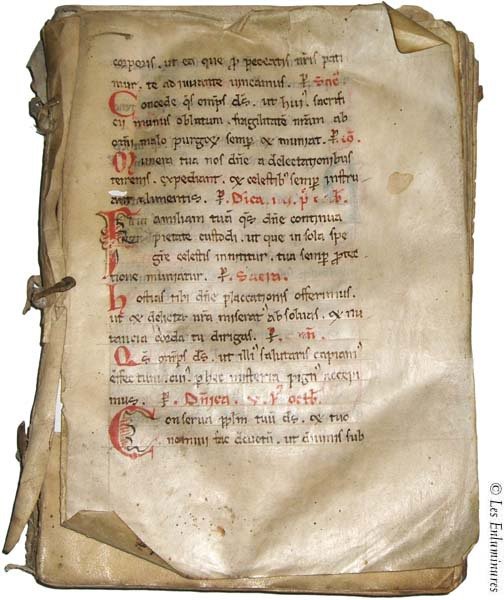 corporis. ut ea que p peccatis nris pati
mur. te adiuvante vincamus. P. Secr.
Concede qs omps ds. ut hui sacrifi
cii munus oblatum. fragilitatē nram ab
omi malo purget semp et muniat. P. cō.
Munera tua nos dñe a delectationibus
terrenis. expediant. et celestib semp instru
ant alimentis. P. Dica. p
Familiam tuā qs dñe continua
pietate custodi. ut que in sola spe
grē celestis innititur. tua semp protec
tione muniatur. P. Sacra.
Hostias tibi dñe placationis offerimus.
ut et delicta nra miserat absoluas. et nu
tancia corda tu dirigas. P. cō.
Qs omps ds. ut illi salutaris capiam
effectum. cui p hec misteria pign accepi
mus. P. Dñica. v. p octb.
Conserva pplm tuū ds. et tuo
nomini fac devotū. ut divinis sub
© Les Enluminures